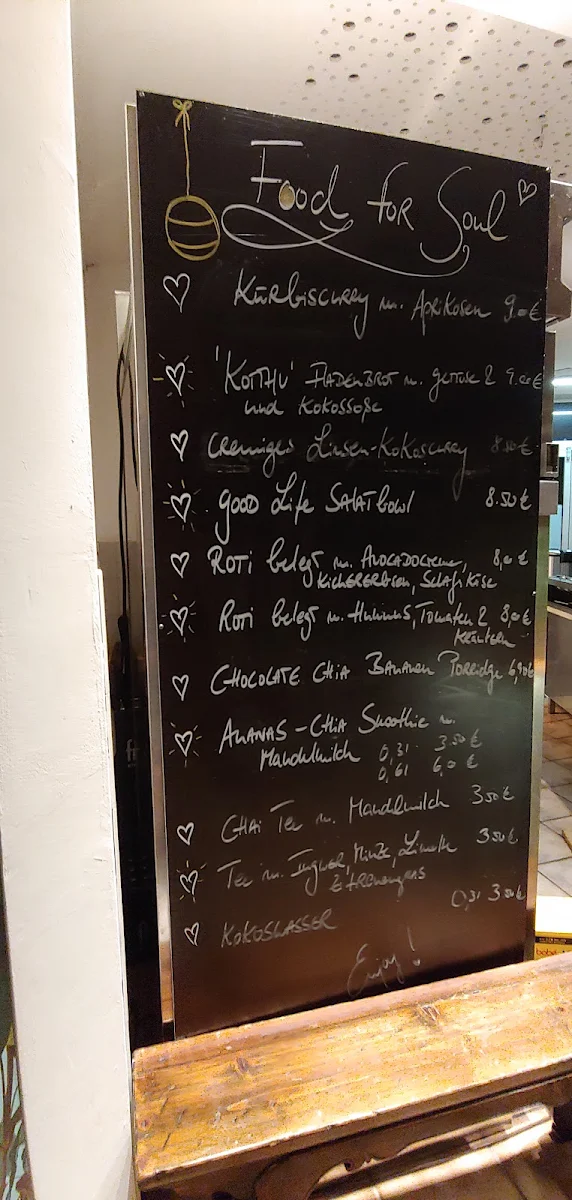 Food for Soul
Kürbiscurry m. Aprikosen 9.00€
'Kotthu' Fladenbrot m. Gemüse & 9.00€
und Kokossoße
Cremiges Linsen-Kokoscurry 8.50€
Good Life Salatbowl 8.50€
Roti belegt m. Avocadocreme, 8,00€
Kichererbsen, Schafskäse
Roti belegt m. Hummus, Tomaten & 8,00€
Kräutern
Chocolate Chia Bananen Porridge 6,90€
Ananas-Chia Smoothie m.
Mandelmilch 0,3l 3.50€
0,6l 6,0 €
Chai Tee m. Mandelmilch 3.50€
Tee m. Ingwer, Minze, Limette 3.50€
& Zitronengras
Kokoswasser 0,3l 3.50€
Enjoy!